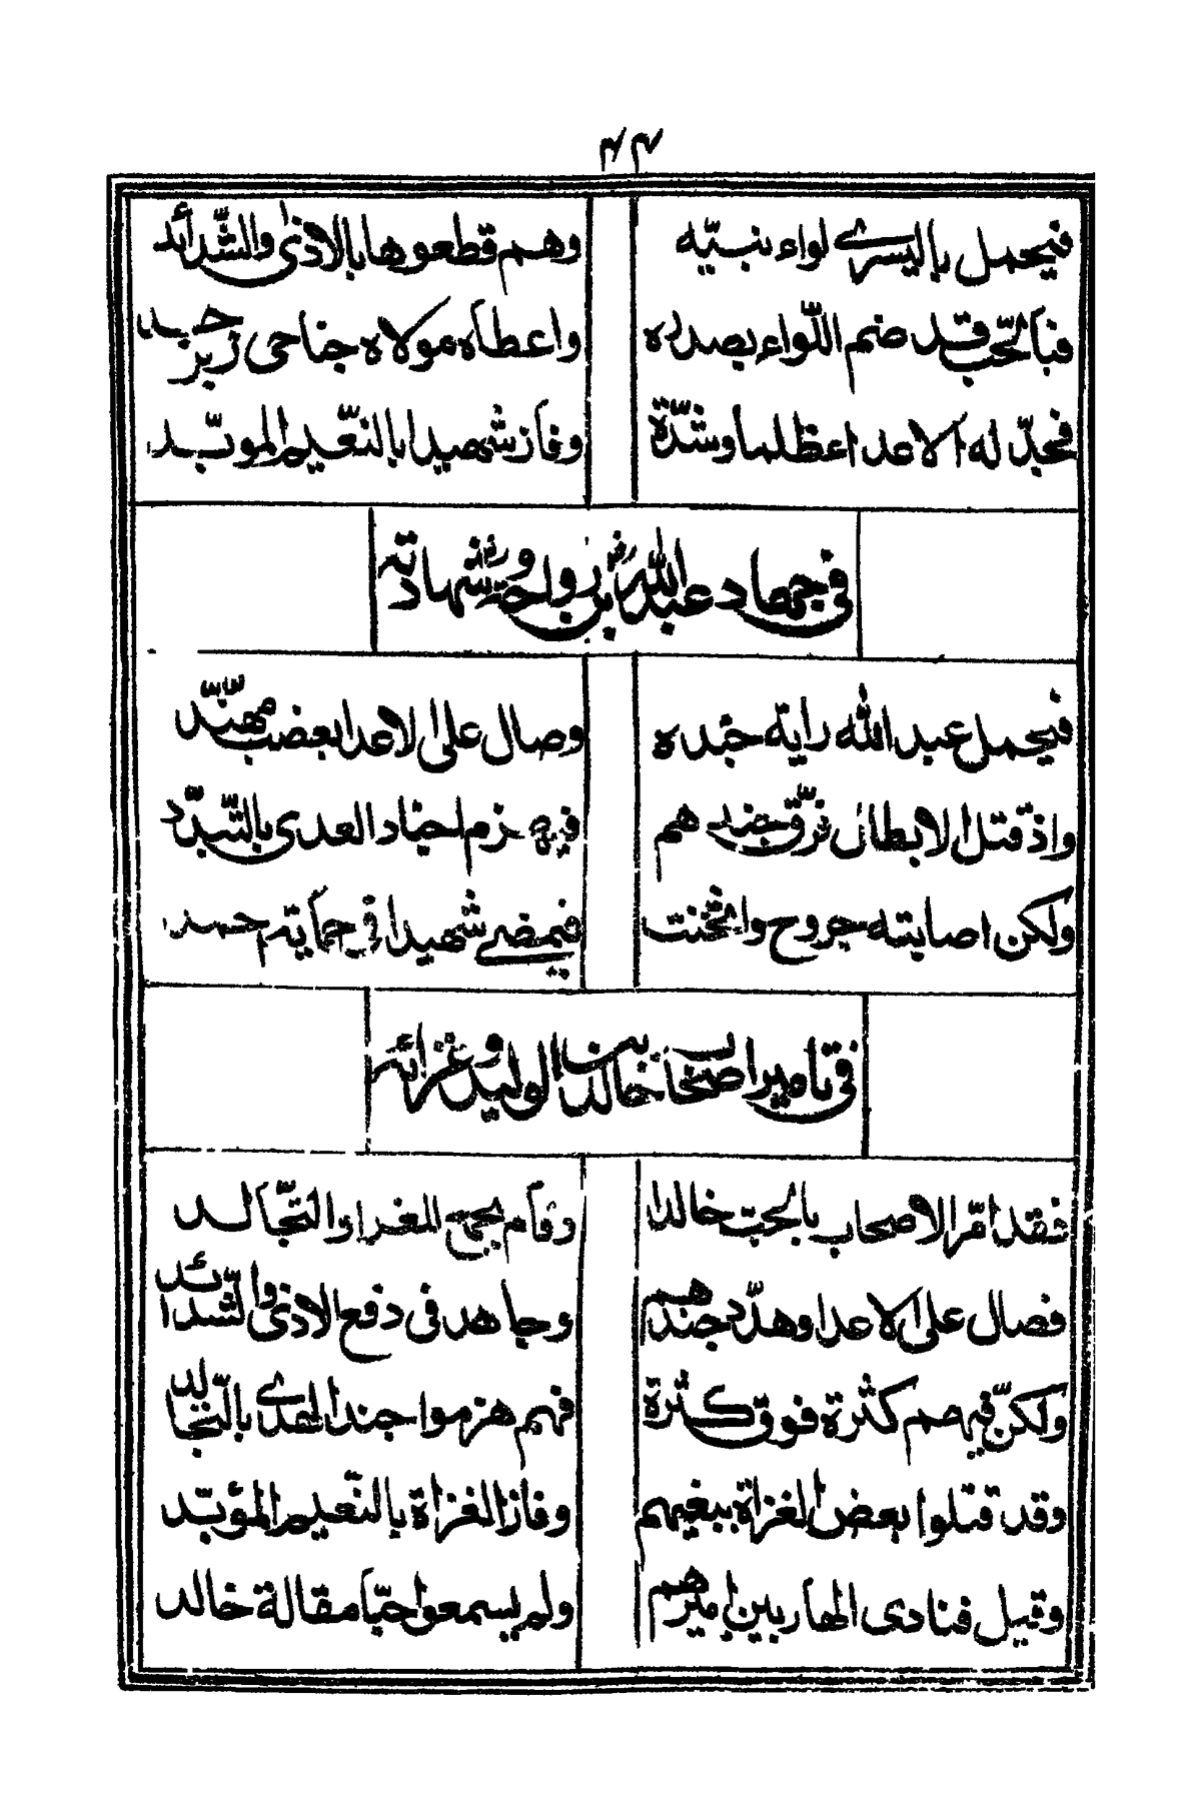 ٤٤
فيحمل باليسرى لواء نبيّه وهم قطعوها بالاذى والشّدائد
فبالحّب قد ضم اللّواء بصدره واعطاه مولاه جناحى زبرجد
فجدّ له الاعدا عظلما وشدّة وفاز شهيدا بالنّعيم الموبّد
فى جهاد عبدالله بن رواحة وشهادته
فيحمل عبد الله راية جنده وصال على الاعدا بعضب مهنّد
واذ قتل الابطال فرّق جندهم فيهزم اجناد العدى بالتّبدّد
ولكن اصابته جروح واثخنت فيمضى شهيدا فى حمايته
فى تامير اصحاب خالد بن الوليد وغزائه
فقد امّر الاصحاب بالحبّ خالدا وقام بجمع للغزا والتّجالد
فصال على الاعدا وهدّد جندهم وجاهد فى دفع الاذى والشّدائد
ولكنّ فيهم كثرة فوق كثرة فهم هزموا جند الهدى بالتّجالد
وقد قتلوا بعض الغزاة ببغيهم وفاز الغزاة بالنّعيم المؤبّد
وقيل فنادى الهاربين اميرهم ولم يسمعوا حبّا مقالة خالد